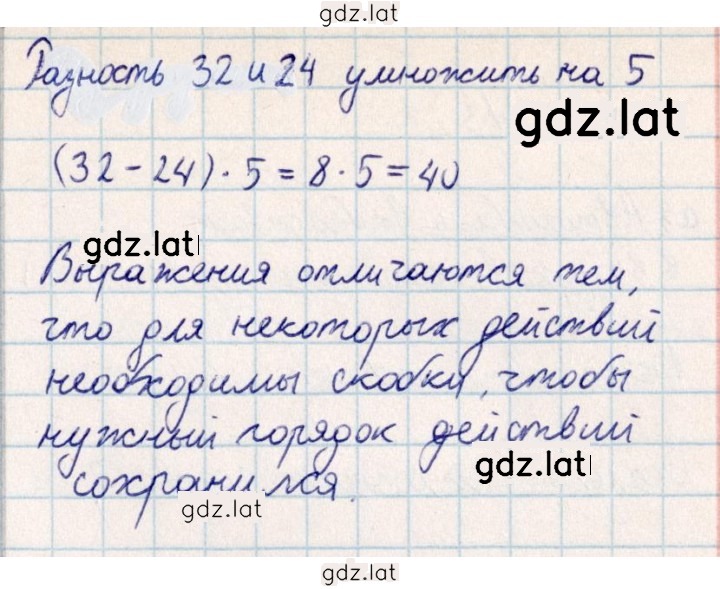 gdz.lat
Разность 32 и 24 умножить на 5
gdz.lat
(32 - 24) · 5 = 8 · 5 = 40
gdz.lat
Выражения отличаются тем,
что для некоторых действий
необходимы скобки, чтобы
нужный порядок действий
gdz.lat
сохранился.
gdz.lat
gdz.lat